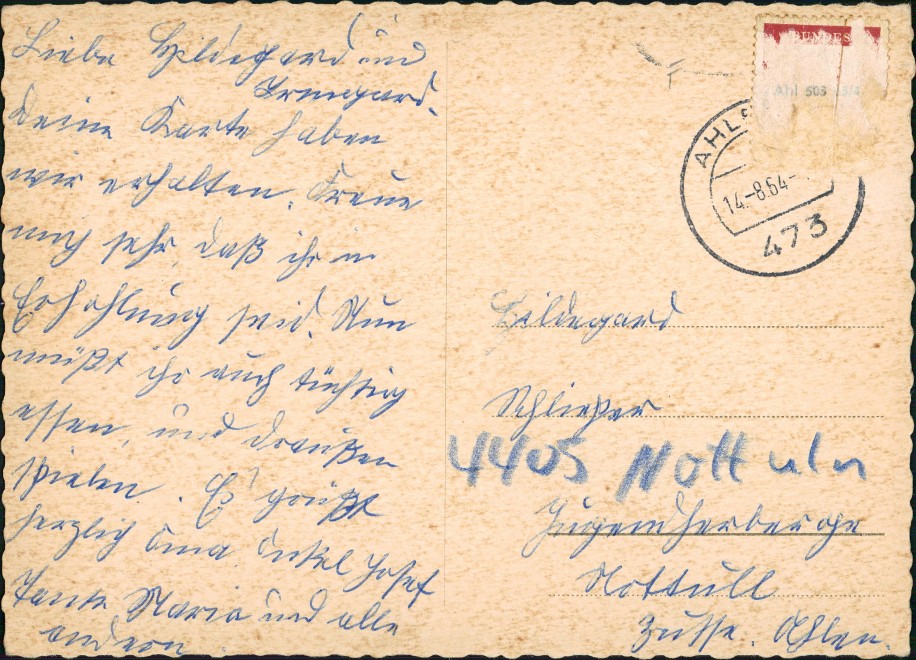 Liebe Hildegard und
Irmgard.
Deine Karte haben
wir erhalten. Freue
mich sehr, daß ihr in
Erhohlung seid. Nun
müßt ihr auch tüchtig
essen, und draußen
spielen. Es grüßt
herzlich Oma Onkel Josef
Tante Maria und alle
andern.
BUNDES
Ahl 503 3/4
AHL
14.-8.64-
473
Hildegard
Schließer
4405 Nottuln
Jugendherberge
Nottull
Ahlen.